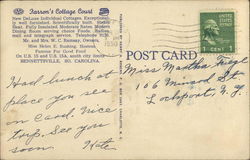 Farrar's Cottage Court
New DeLuxe Individual Cottages. Exceptional-
ly well furnished. Scientifically built. Gas
Heat. Fully Insulated. Moderate Rates. Modern
Dining Room serving choice Foods. Radio,
mail and telegraph service. Telephone
Mr. and Mrs. W. C. Ramsey, Owners.
Miss Helen E. Rushing, Hostess
Famous For Good Food
On U.S. 15 and U.S. 15A, south city limits
BENNETTSVILLE, SO. CAROLINA
POST CARD
1 CENT 1
Had lunch at
place you see
on card. Nice
trip. See you
soon.
Kate
Miss Martha
106 Minard St
Lockport, N.Y.